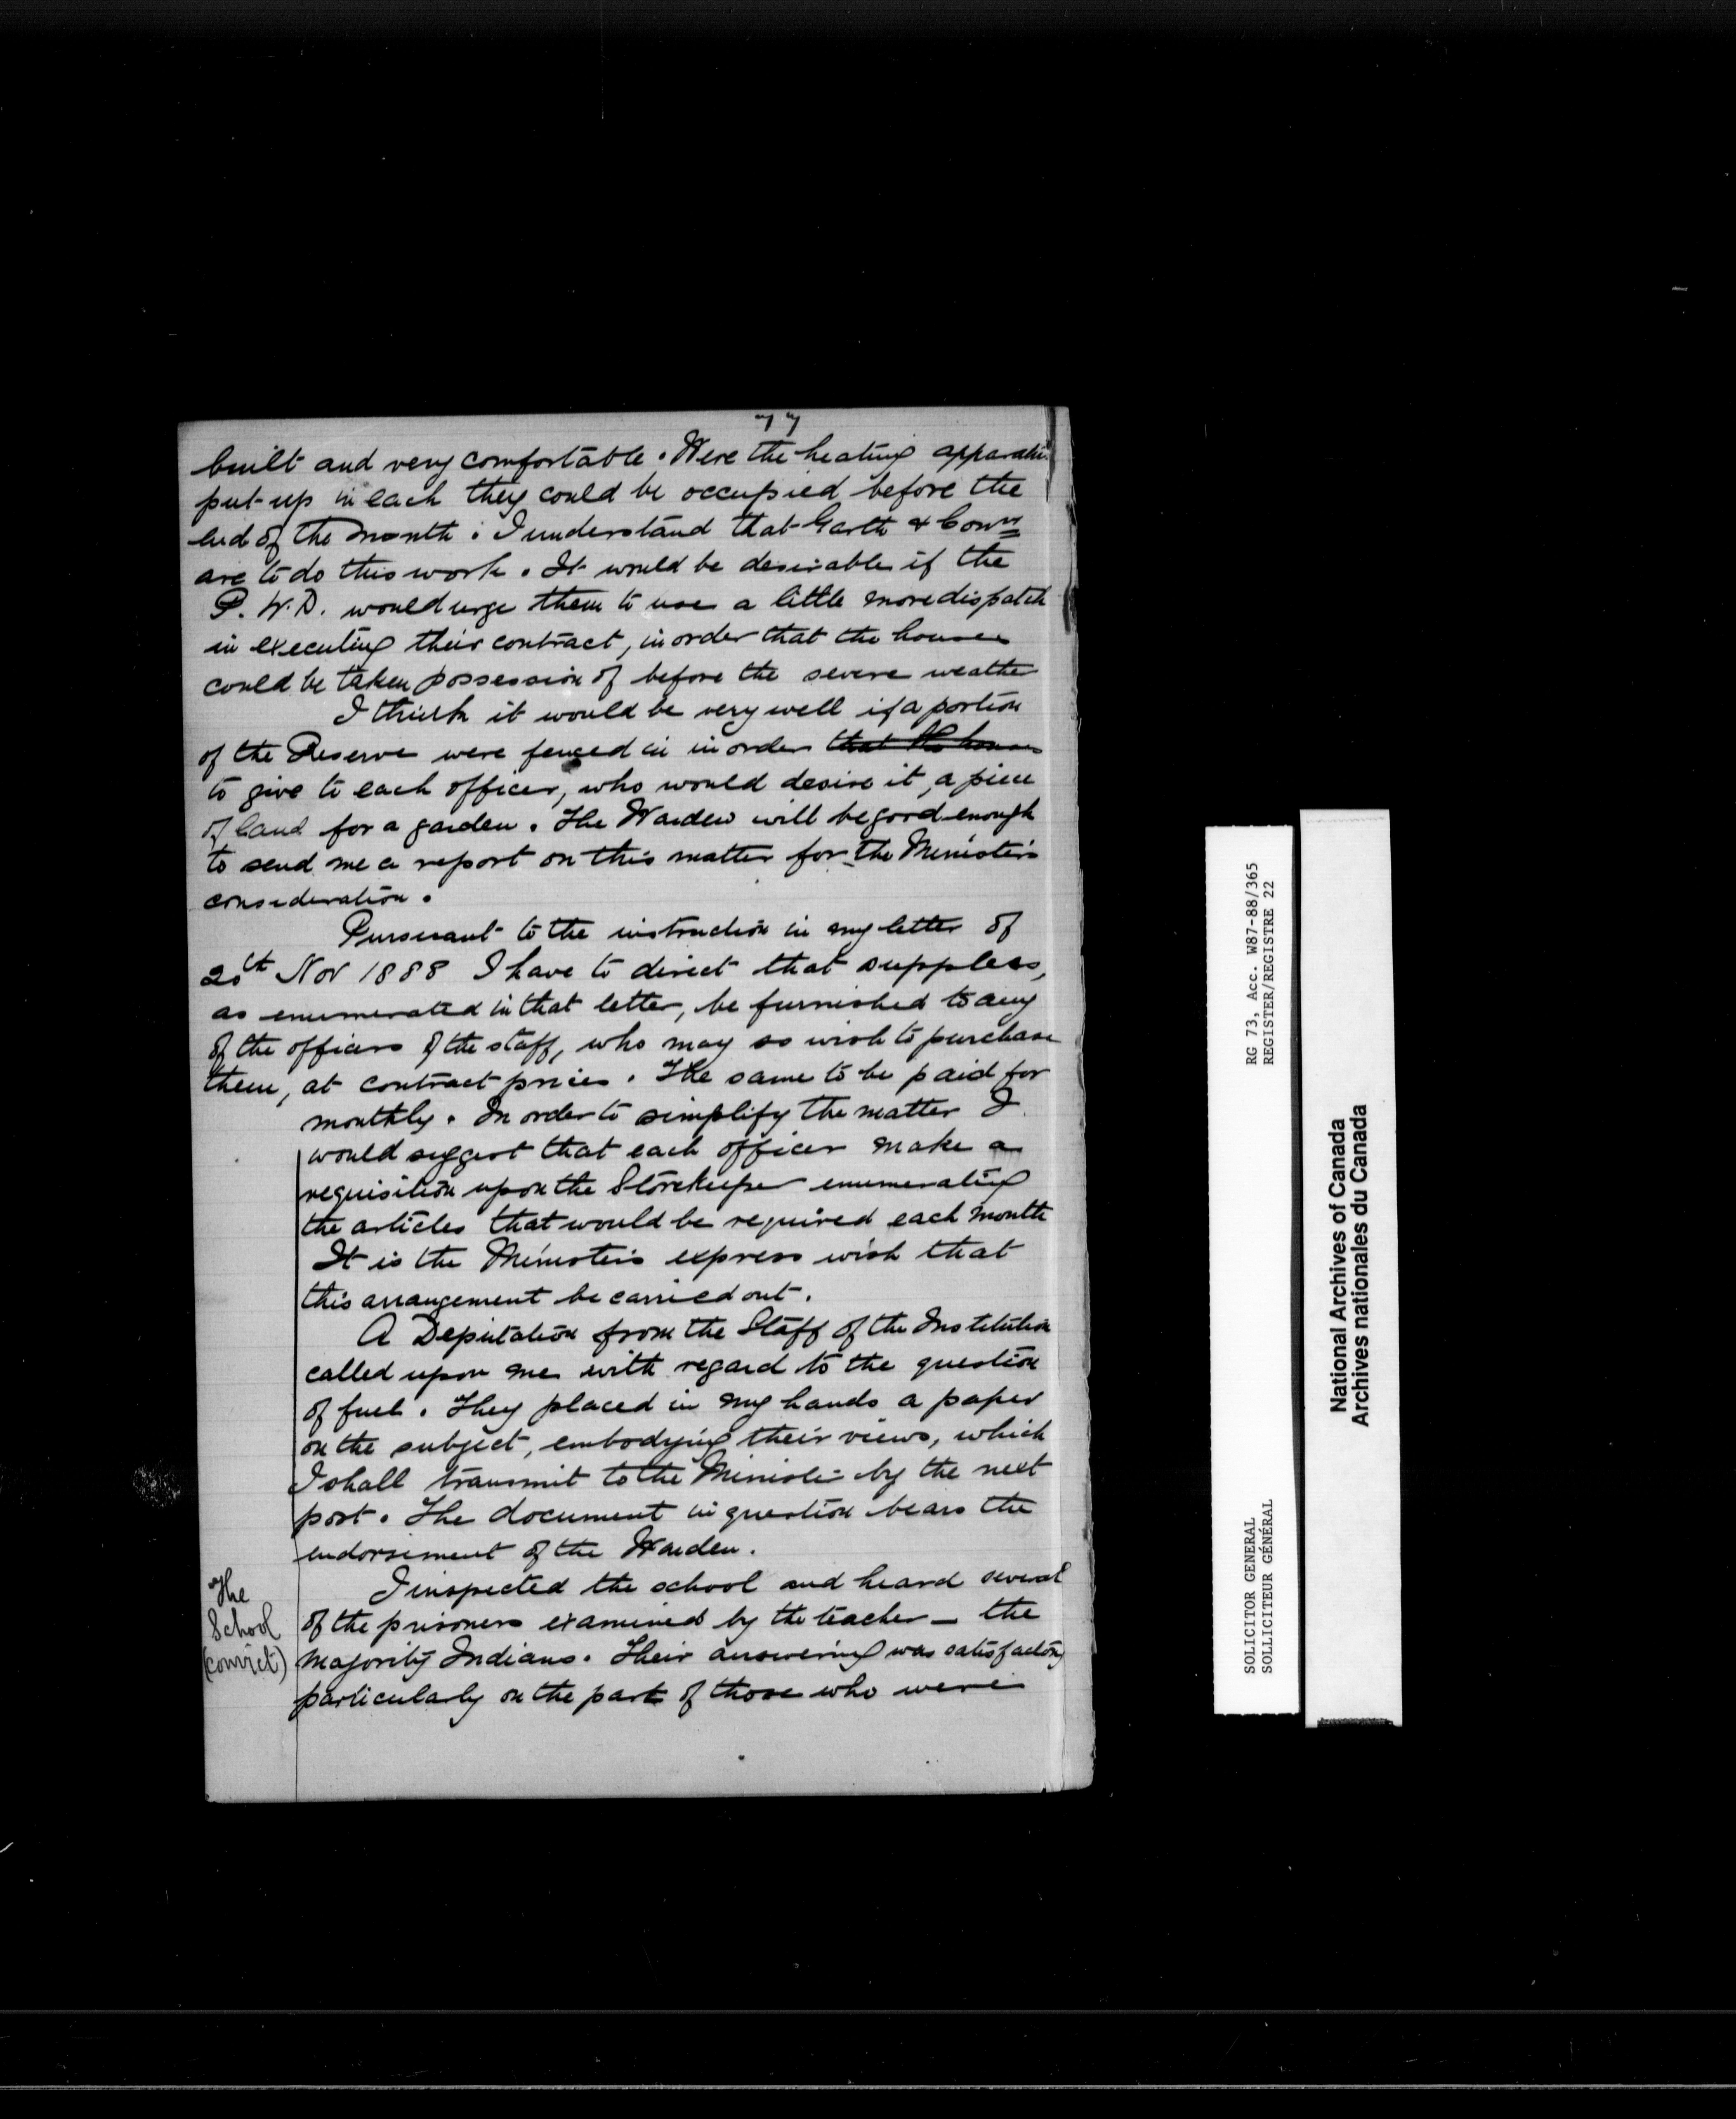 77
built and very comfortable. Were the heating apparatus
put up in each they could be occupied before the
end of the month. I understand that Garth & Comy
are to do this work. It would be desirable if the
P. W. D. would urge them to use a little more dispatch
in executing their contract, in order that the houses
could be taken possession of before the severe weather
I think it would be very well if a portion
of the Reserve were fenced in in order that the houses
to give to each officer, who would desire it, a piece
of land for a garden. The Warden will be good enough
to send me a report on this matter for the Minister's
consideration.
Pursuant to the instruction in my letter of
20th Nov 1888 I have to direct that supplies,
as enumerated in that letter, be furnished to any
of the officers of the staff, who may so wish to purchase
them, at contract prices. The same to be paid for
monthly. In order to simplify the matter I
would suggest that each officer make a
requisition upon the Storekeeper enumerating
the articles that would be required each month
It is the Minister's express wish that
this arrangement be carried out.
A Deputation from the Staff of the Institution
called upon me with regard to the question
of fuel. They placed in my hands a paper
on the subject, embodying their views, which
I shall transmit to the Minister by the next
post. The document in question bears the
endorsement of the Warden.
The
School
(convict)
I inspected the school and heard several
of the prisoners examined by the teacher – the
majority Indians. Their answering was satisfactory
particularly on the part of those who were
RG 73, Acc. W87-88/365
REGISTER/REGISTRE 22
SOLICITOR GENERAL
SOLLICITEUR GÉNÉRAL
National Archives of Canada
Archives nationales du Canada